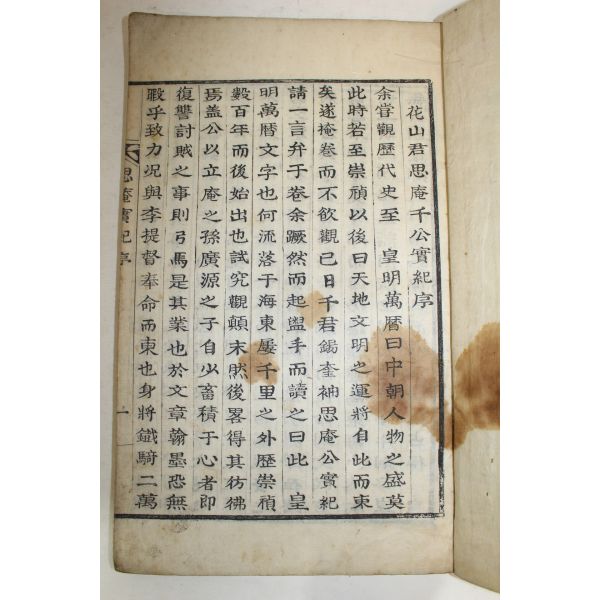 花山君思庵千公實紀序
余嘗觀歷代史至 皇明萬曆曰中朝人物之盛莫
此時若至崇禎以後曰天地文明之運將自此而東
矣遂掩卷而不飮觀已日千君錫奎袖思庵公實紀
請一言弁于卷余蹶然而起盥手而讀之曰此 皇
明萬曆文字也何流落于海東屢千里之外歷崇禎
數百年而後始出也試究觀顛末然後畧得其彷彿
焉盖公以立庵之孫廣源之子自少畜積于心者即
復讐討賊之事則弓馬是其業也於文章翰墨恐無
暇乎致力況與李提督奉命而東也身將鐵騎二萬
思庵實紀序
一